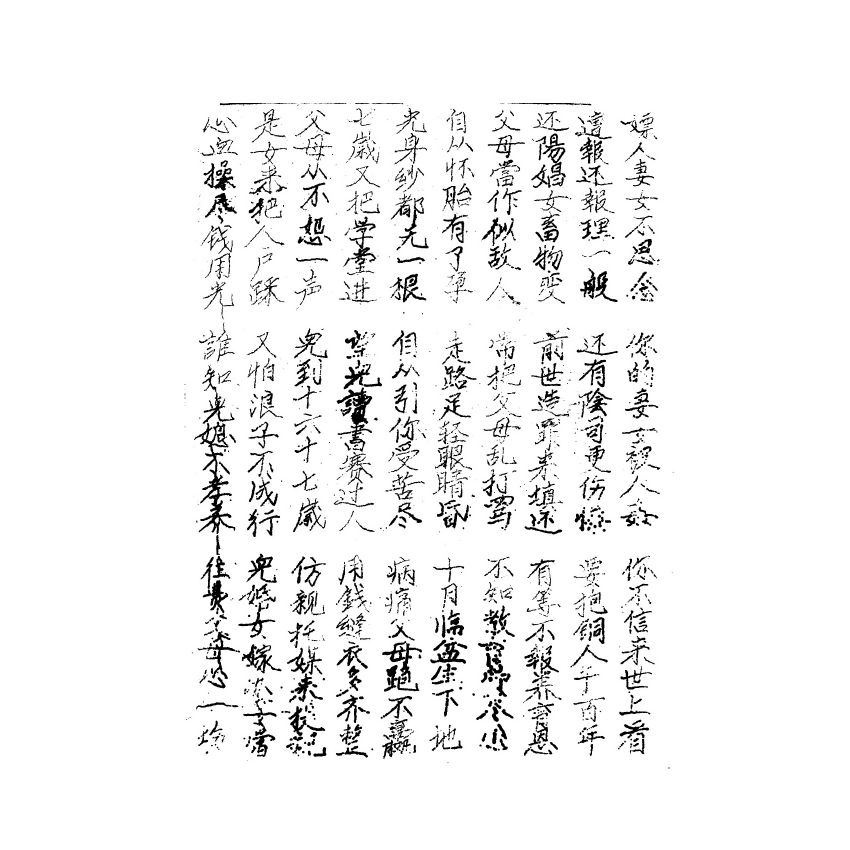 嫖人妻女不思念 你的妻女被人姦 你不信来世上看
遭報还報理一般 还有陰司更伤惨 要抱銅人千百年
还陽娼女畜物变 前世造罪来填还 有等不報养育恩
父母當作似敌人 常把父母乱打罵 不知
自从怀胎有了孕 走路足轻眼睛昏 十月临盆生下地
光身纱都无一根 自从引你受苦尽 病痛父母跑不赢
七歲又把学堂进 望兒讀書赛过人 用錢縫衣多齐整
父母从不怨一声 兒到十六十七歲 仿親托媒来
是女来把人户踩 又怕浪子不成行 兒婚女嫁當
心血操尽钱用光 誰知兒媳不孝养 往費父母心一塲